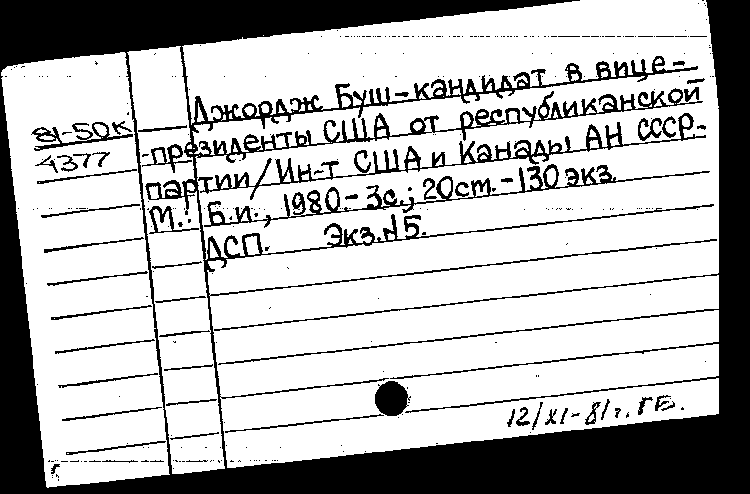 Джордж Буш-кандидат в вице-
81-50К
-президенты США от республиканской
4377
партии/Ин-т США и Канады АН СССР.-
М.: Б.и., 1980.- 3с.; 20 ст.-130 экз.
ДСП. Экз.№5.
12/XI-81г. ГБ.